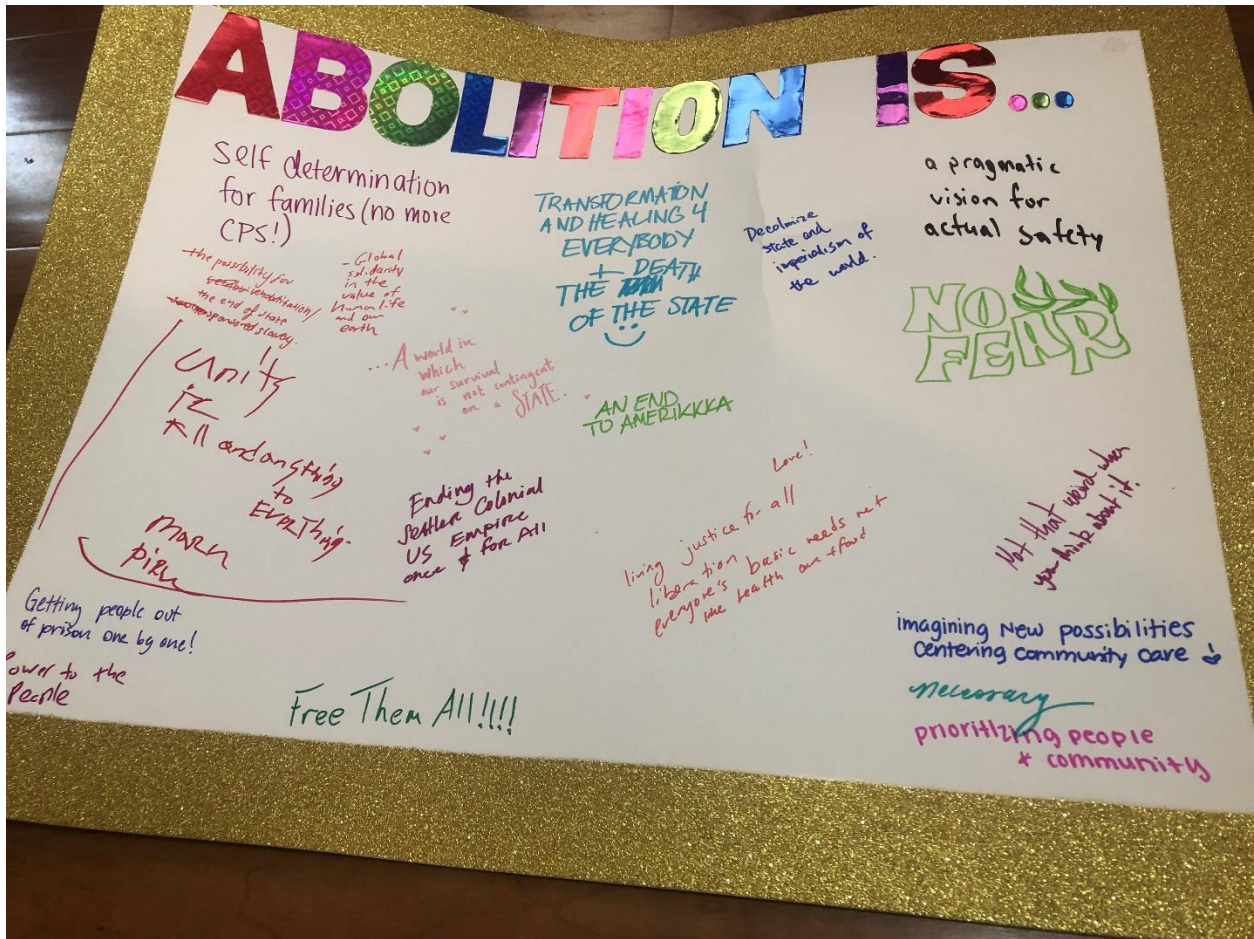 ABOLITION IS...
self determination
for families (no more
CPS!)
- the possibility for
rehabilitation/
the end of state
sponsored slavery.
- Global
solidarity
in the
value of
human life
and our
earth
TRANSFORMATION
AND HEALING 4
EVERYBODY
+ DEATH
THE
OF THE STATE
Decolonize
state and
imperialism of
the world.
a pragmatic
vision for
actual safety
NO
FEAR
Unity
is
All and anything
to
EVERYThing.
...A world in
which
our survival
is not contingent
on a STATE.
AN END
TO AMERIKKKA
Ending the
Settler Colonial
US Empire
once & for All
Love!
living justice for all
liberation
everyone's basic needs met
Not that weird when
you think about it.
Getting people out
of prison one by one!
Power to the
People
Free Them All!!!!
imagining New possibilities
centering community care
necessary
prioritizing people
+ community